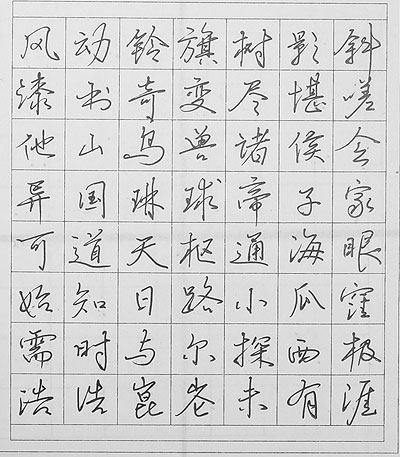 风动铃旗树影斜
漆书奇变尽堪嗟
他山鸟兽诸侯会
异国琳球帝子家
可道天枢通海眼
始知日路小瓜窪
需时与尔探西极
浩浩崑崙未有涯